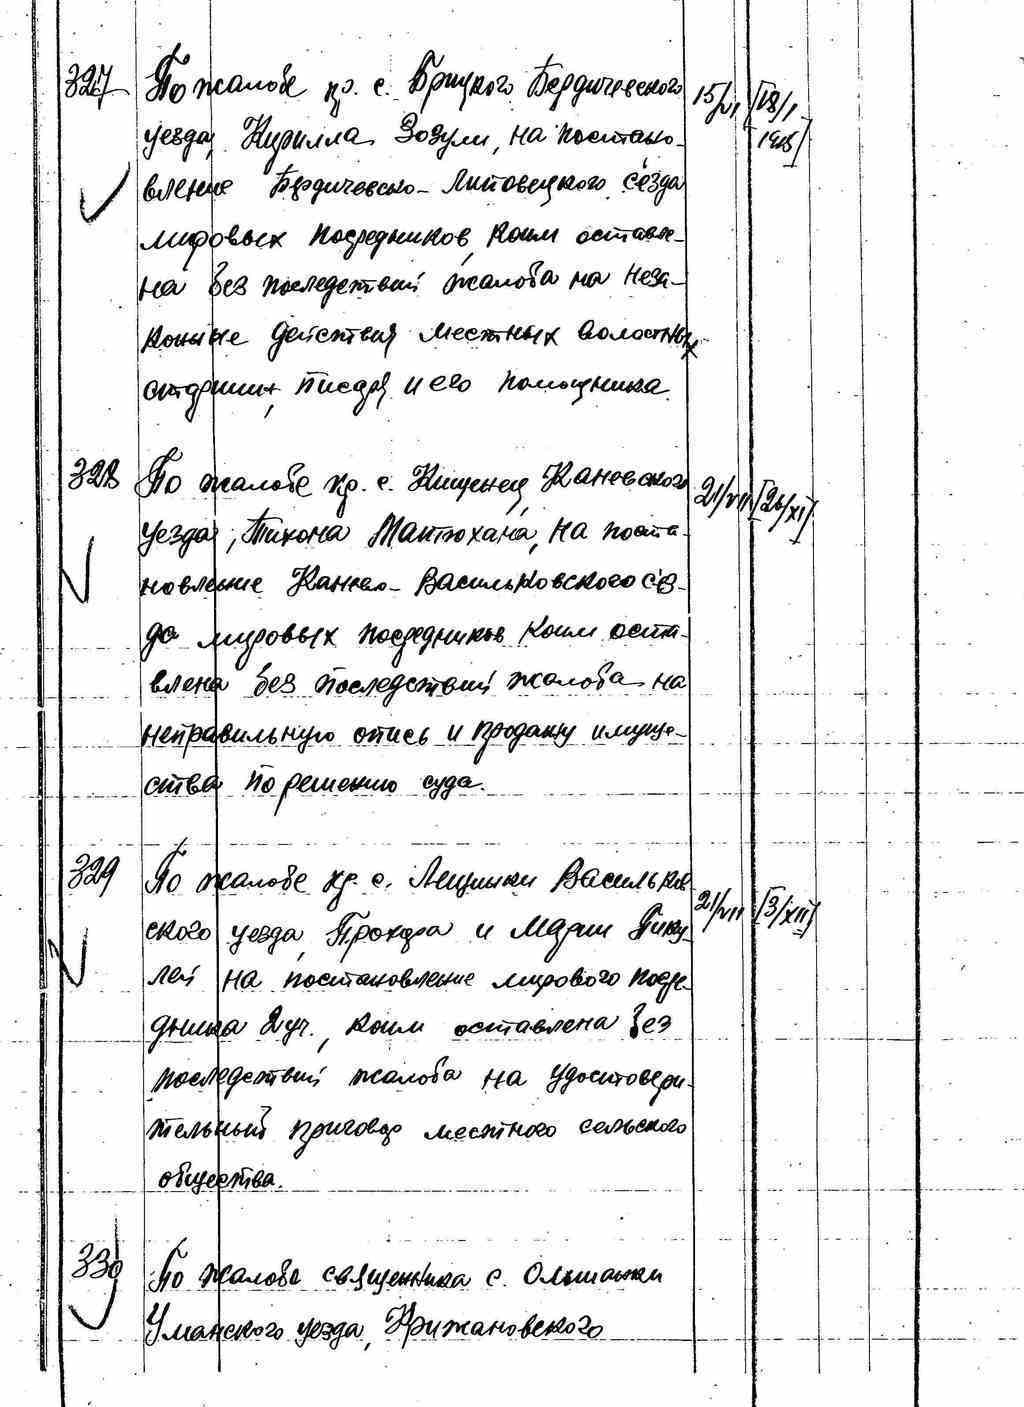 327 По жалобе кр. с. Брицкого Бердичевского 15/VI [18/I
уезда, Кирилла Зозули, на постано- 1915]
вление Бердичевско-Липовецкого с'езда
мировых посредников, коим оставле-
на без последствий жалоба на неза-
конные действия местных волостных
старшин, писаря и его помощника.
328 По жалобе кр. с. Кищенец, Каневского 21/VII [26/XI]
уезда, Тихона Мантюхана, на поста-
новление Канево-Васильковского с'ез-
да мировых посредников коим оста-
влена без последствий жалоба на
неправильную опись и продажу имуще-
ства по решению суда.
329 По жалобе кр. с. Лещинки Васильков- 21/VII [3/XII]
ского уезда, Прохора и Марии Пику-
лей на постановление мирового посре-
дника 2 уч., коим оставлена без
последствий жалоба на удостовери-
тельный приговор местного сельского
общества.
330 По жалобе священника с. Ольшанки
Уманского уезда, Крижановского